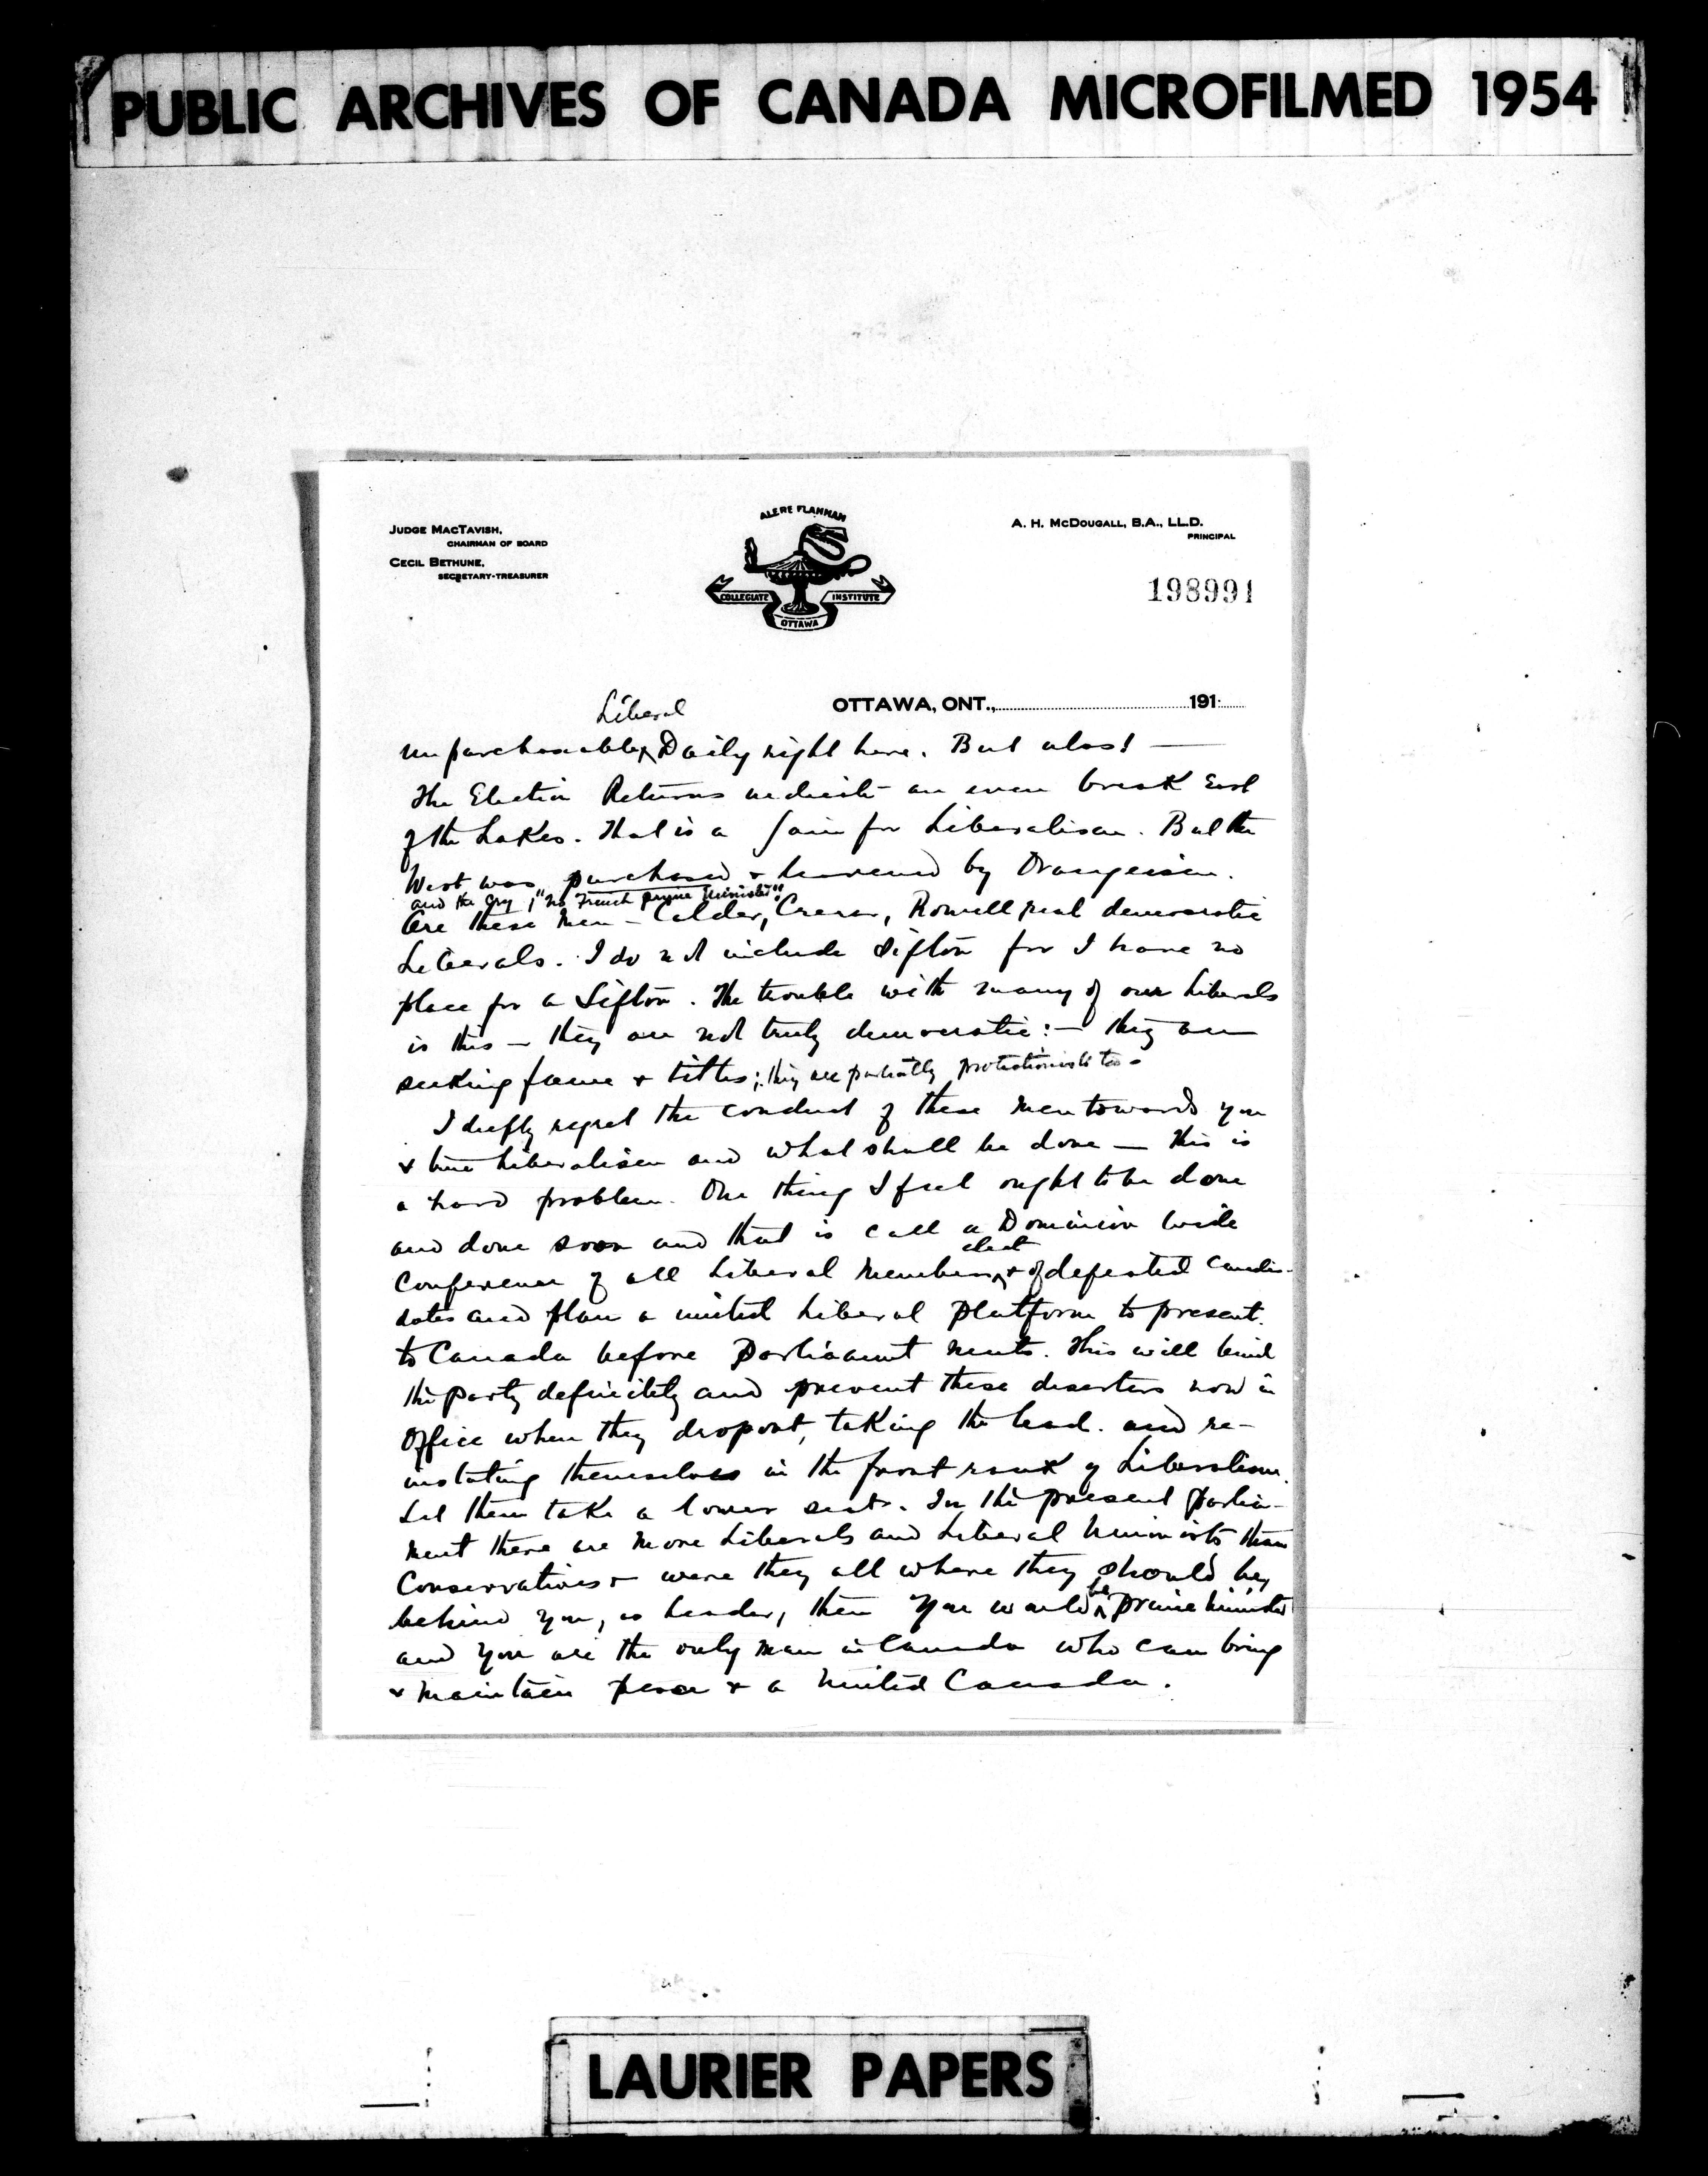 PUBLIC ARCHIVES OF CANADA MICROFILMED 1954
JUDGE MACTAVISH,
CHAIRMAN OF BOARD
CECIL BETHUNE,
SECRETARY-TREASURER
ALERE FLAMMAM
COLLEGIATE INSTITUTE
OTTAWA
A. H. MCDOUGALL, B.A., LL.D.
PRINCIPAL
198991
OTTAWA, ONT., 191
Liberal
unpurchasable Daily right here. But alas! —
The Election Returns indicate an even break East
of the Lakes. That is a gain for Liberalism. But the
West was purchased & leavened by Orangeism.
and the cry, "no French prime Minister".
Are these men — Calder, Crerar, Rowell real democratic
Liberals. I do not include Sifton for I have no
place for a Sifton. The trouble with many of our Liberals
is this — they are not truly democratic: — they are
seeking fame & titles; they are partially protectionists too.
I deeply regret the conduct of these men towards you
& true Liberalism and what shall be done — this is
a hard problem. One thing I feel ought to be done
and done soon and that is call a Dominion wide
elect
Conference of all Liberal Members & of defeated Candi-
dates and plan a united Liberal Platform to present
to Canada before Parliament meets. This will bind
the party definitely and prevent these deserters now in
Office when they drop out, taking the lead and re-
instating themselves in the front rank of Liberalism.
Let them take a lower seat. In the present Parlia-
ment there are more Liberals and Liberal Unionists than
Conservatives & were they all where they should be,
be
behind you, as leader, then you would prime minister
and you are the only man in Canada who can bring
& maintain peace & a United Canada.
LAURIER PAPERS